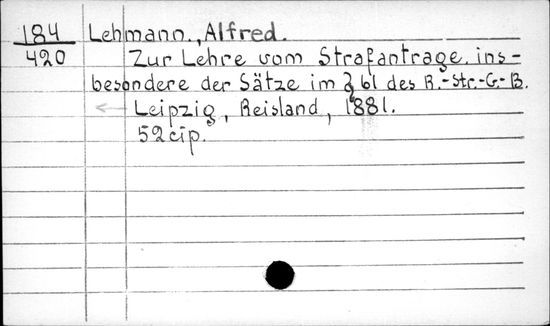 184 Lehmann., Alfred.
420 Zur Lehre vom Strafantrage, ins-
besondere der Sätze im § 61 des R.-Str.-G.-B.
Leipzig, Reisland, 1881.
52 cip.